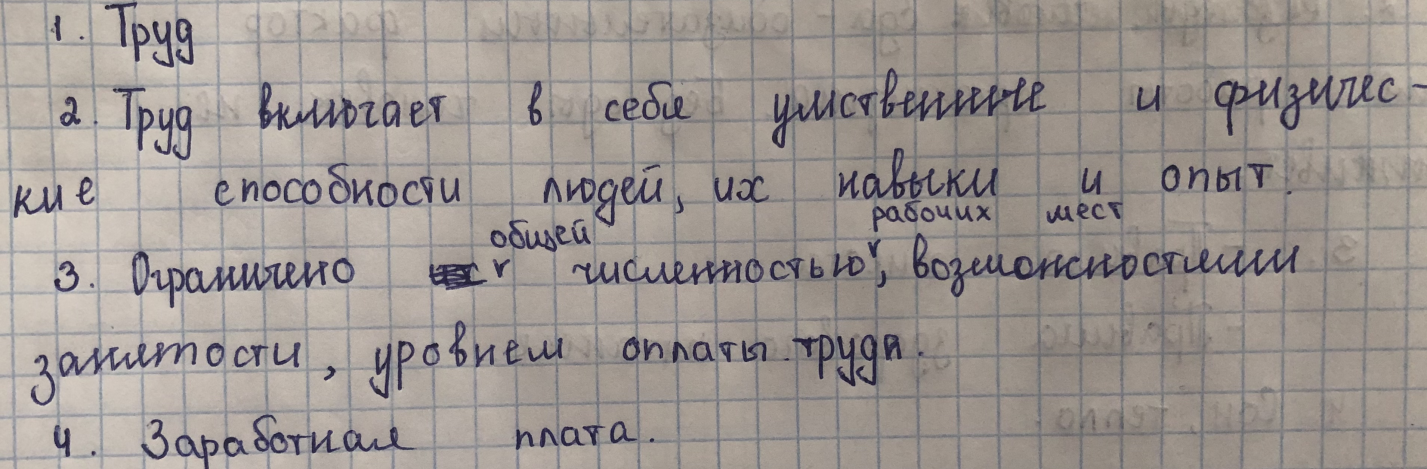 1. Труд
2. Труд включает в себя умственные и физичес-
кие способности людей, их навыки и опыт.
рабочих мест
общей
3. Ограничено численностью, возможностями
занятости, уровнем оплаты труда.
4. Заработная плата.